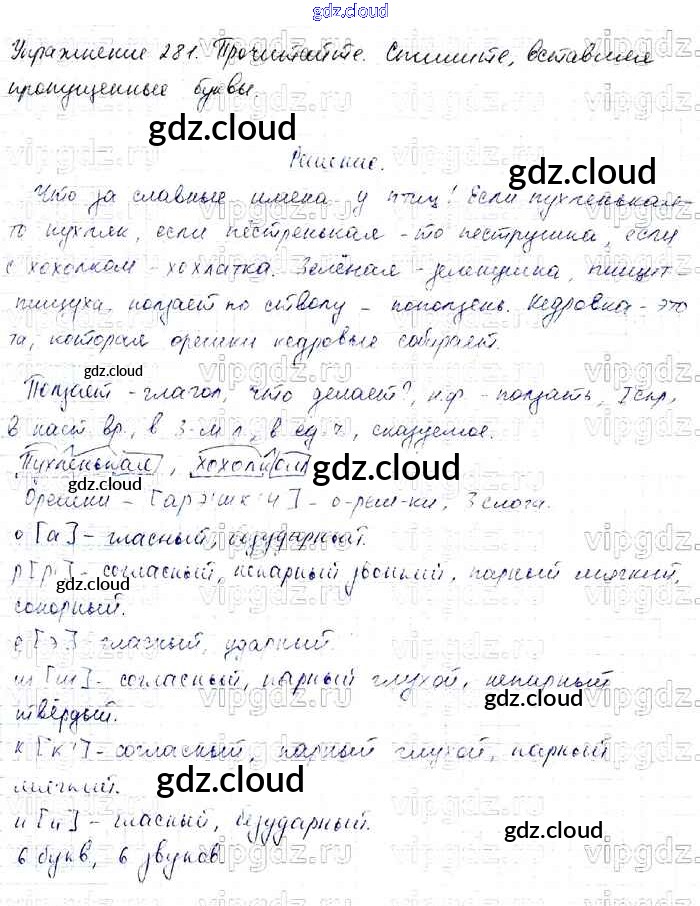 gdz.cloud
Упражнение 281. Прочитайте. Спишите, вставляя
пропущенные буквы.
gdz.cloud
Решение.
gdz.cloud
Что за славные имена у птиц! Если пухленькая-
то пухляк, если пёстренькая - то пеструшка, если
с хохолком - хохлатка. Зелёная - зеленушка, пищит -
пищуха, ползает по стволу - поползень. Кедровка - это
та, которая орешки кедровые собирает.
gdz.cloud
Ползает - глагол, что делает?, н.ф - ползать, I спр,
в наст вр., в 3-м л, в ед. ч, сказуемое.
Пухленькая, хохолком
gdz.cloud
gdz.cloud
Орешки - [ар'эшк'и] - о-реш-ки, 3 слога.
о [а] - гласный, безударный.
gdz.cloud
р [р'] - согласный, непарный звонкий, парный мягкий,
сонорный.
е [э] - гласный, ударный.
ш [ш] - согласный, парный глухой, непарный
твёрдый.
gdz.cloud
к [к'] - согласный, парный глухой, парный
мягкий.
gdz.cloud
и [и] - гласный, безударный.
gdz.cloud
6 букв, 6 звуков